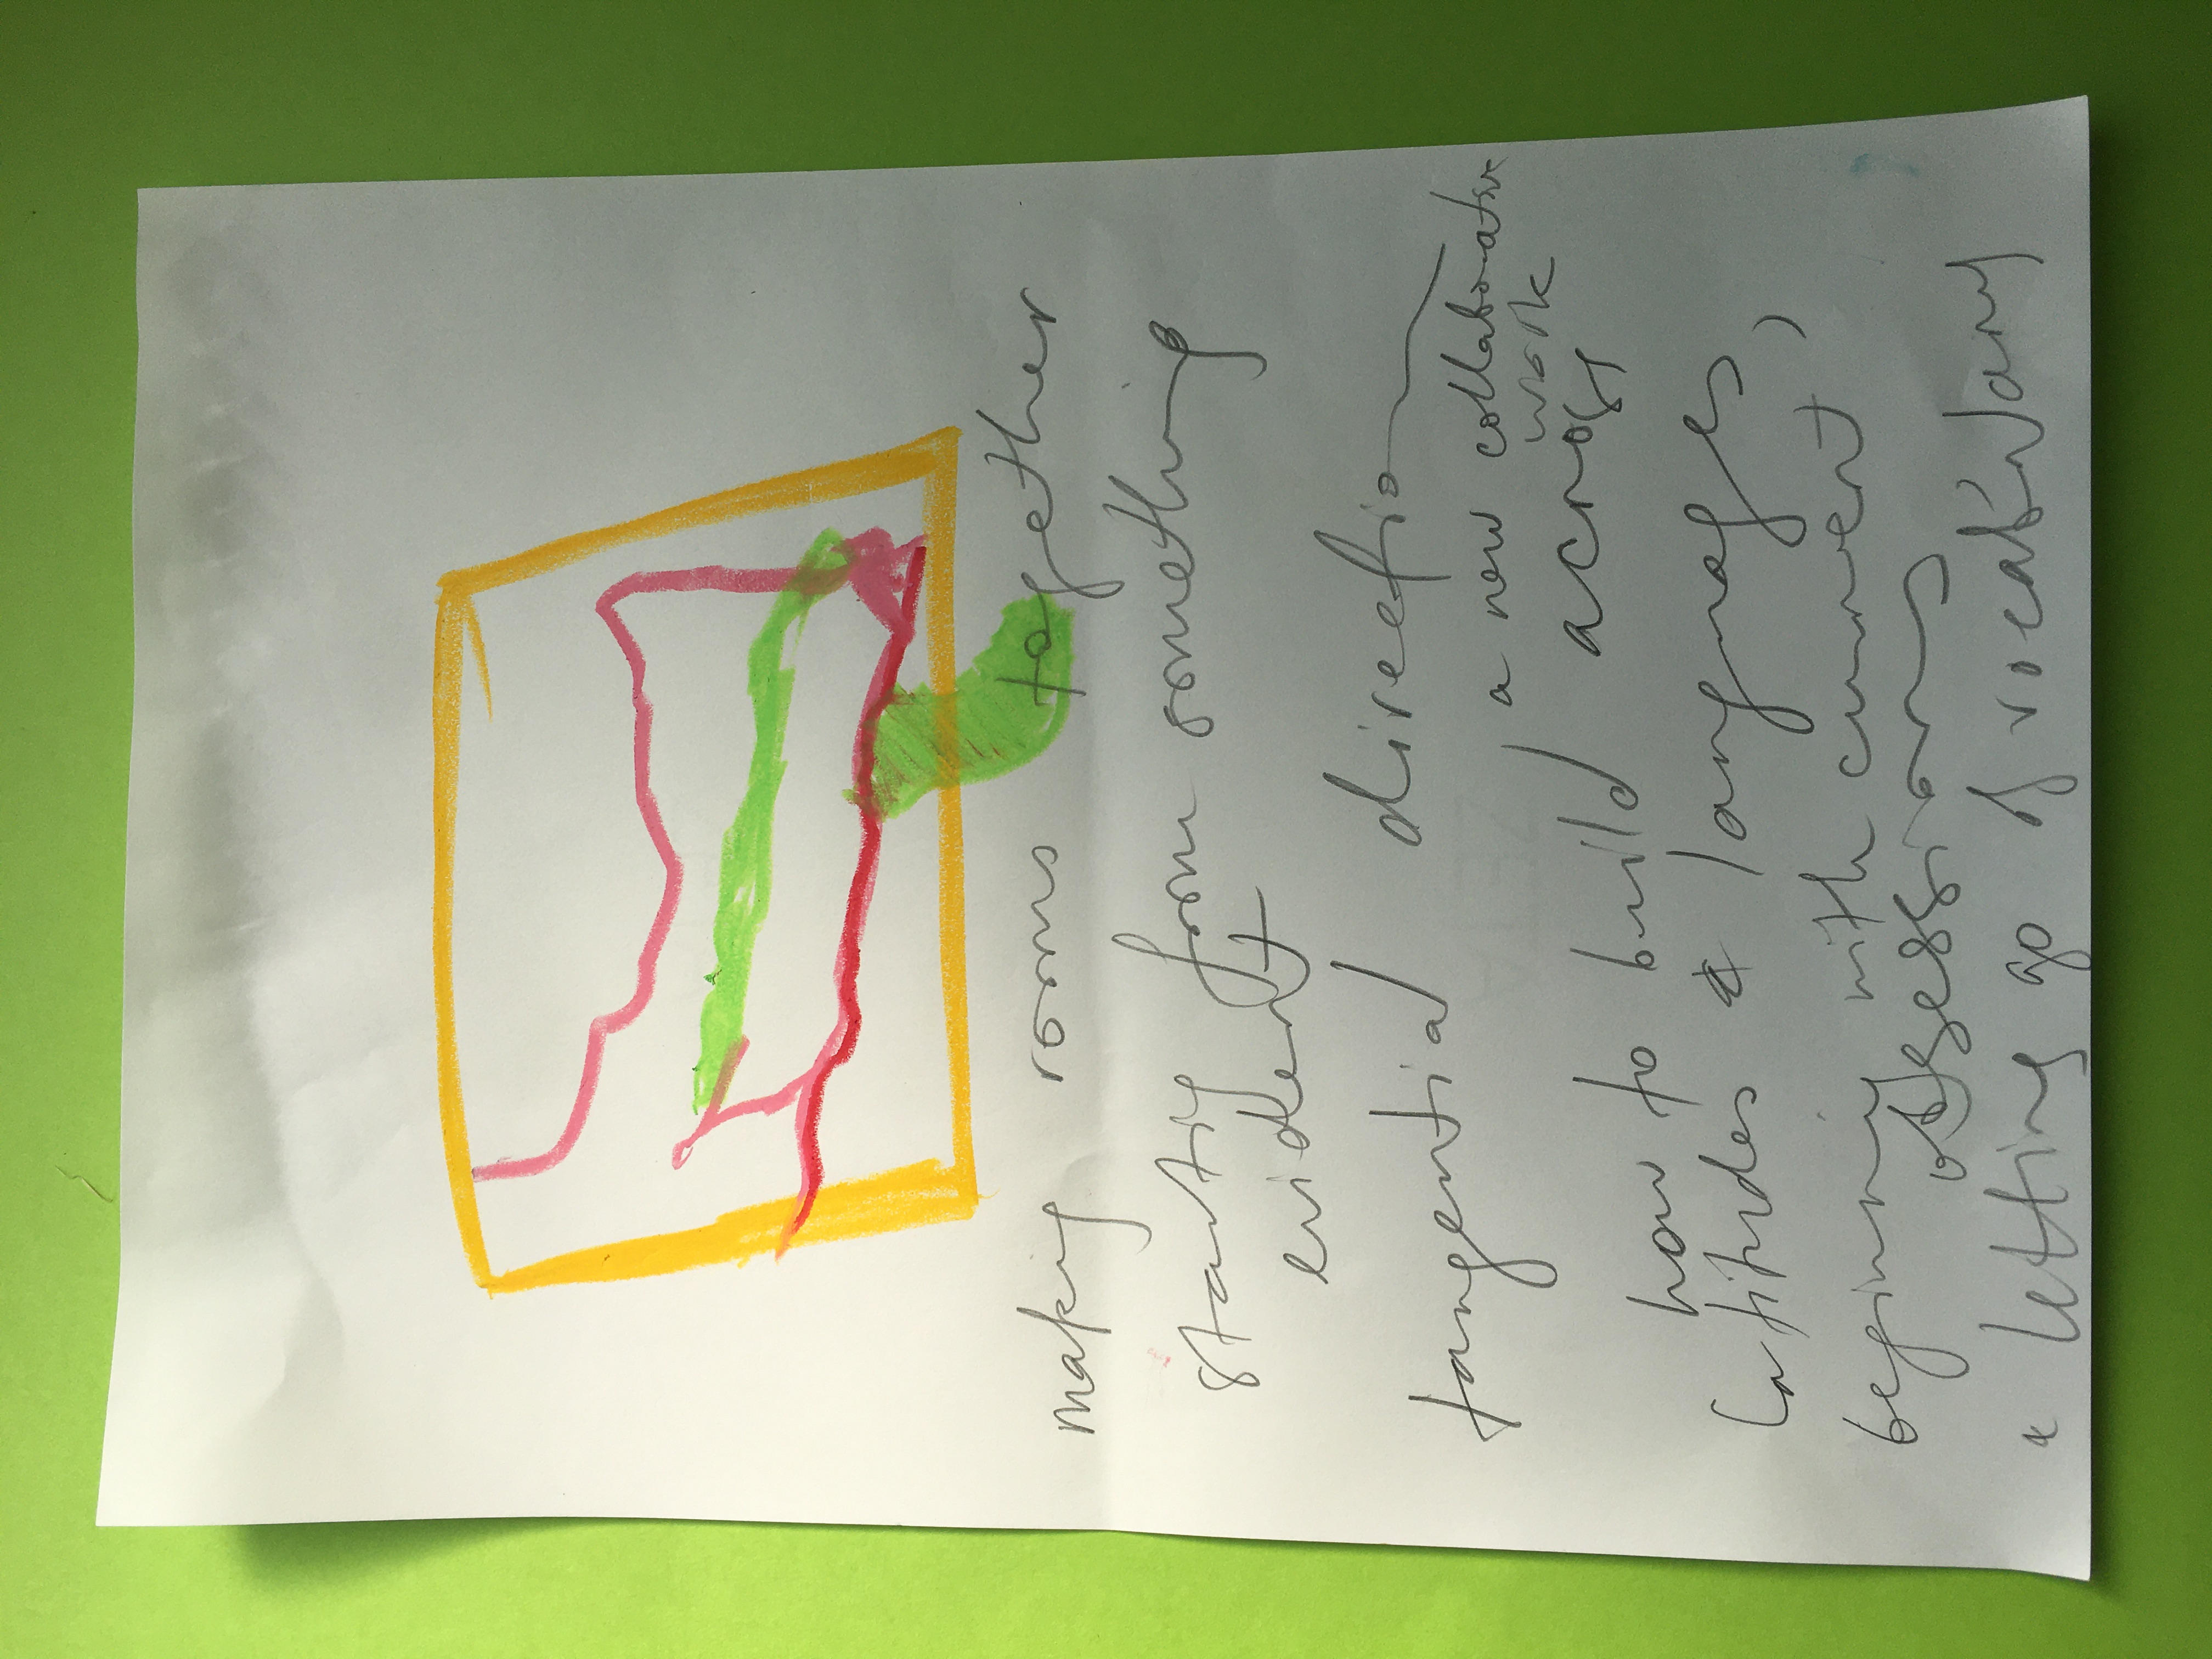 making rooms together
starting from something
evident
tangential direction
how to build a new collaborative
work
across
latitudes & languages
beginning with current
obsessions
* letting go of vocabulary